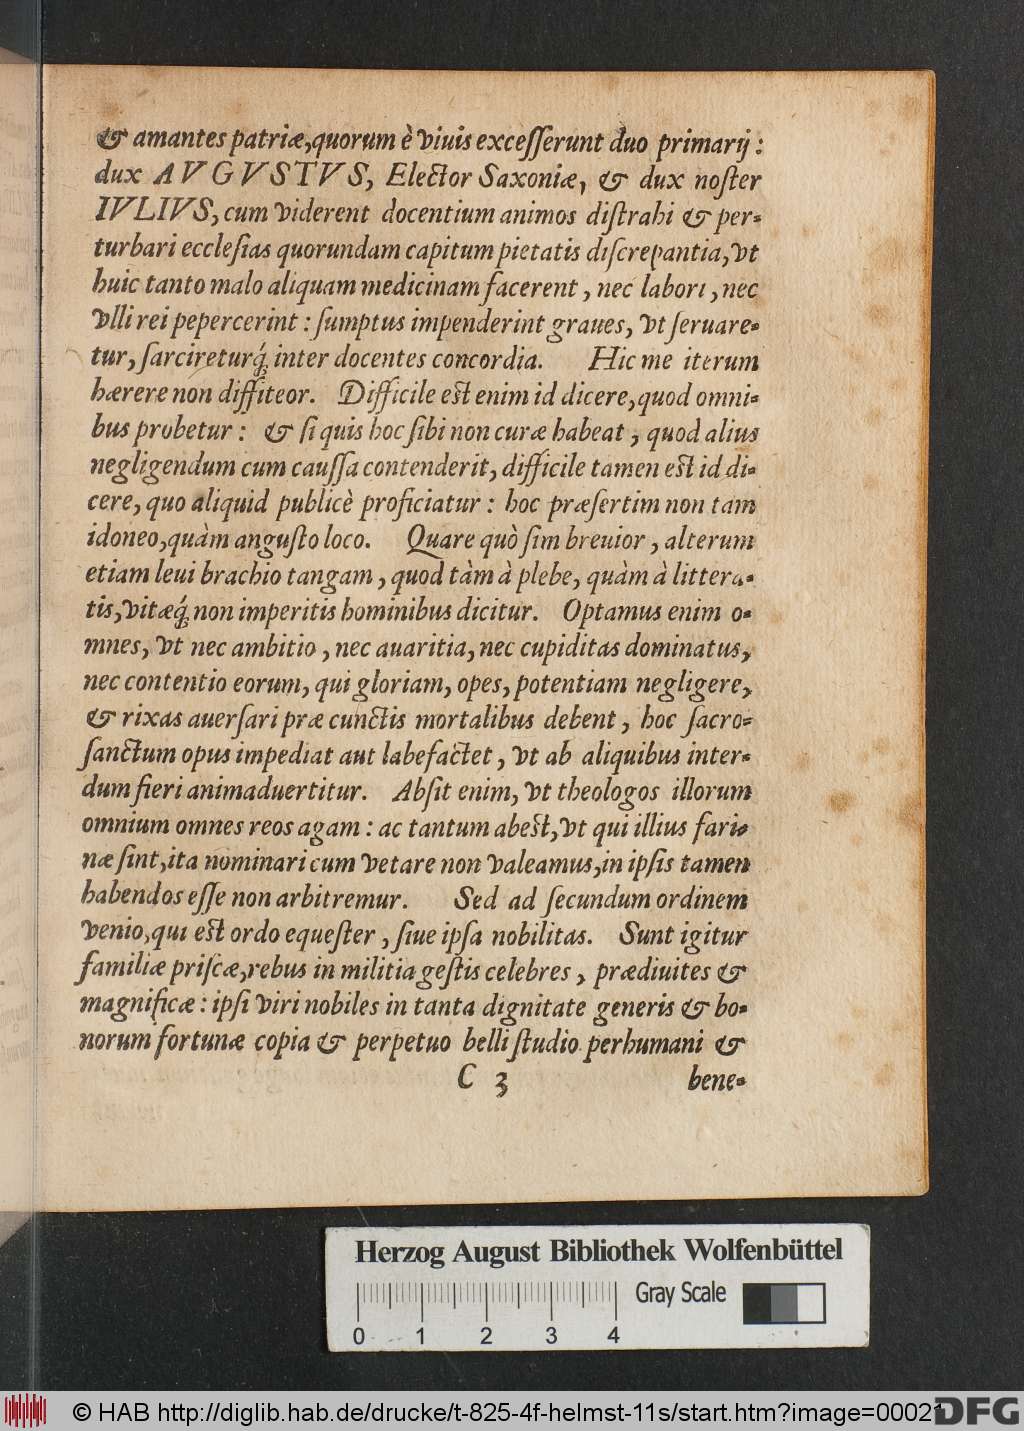 & amantes patriæ, quorum è viuis excesserunt duo primarij:
dux AVGVSTVS, Elector Saxoniæ, & dux noster
IVLIVS, cum viderent docentium animos distrahi & per-
turbari ecclesias quorundam capitum pietatis discrepantia, vt
huic tanto malo aliquam medicinam facerent, nec labori, nec
vlli rei pepercerint: sumptus impenderint graues, vt seruare-
tur, sarcireturq́ inter docentes concordia. Hic me iterum
hærere non diffiteor. Difficile est enim id dicere, quod omni-
bus probetur: & si quis hoc sibi non curæ habeat, quod alius
negligendum cum caussa contenderit, difficile tamen est id di-
cere, quo aliquid publicè proficiatur: hoc præsertim non tam
idoneo, quàm angusto loco. Quare quò sim breuior, alterum
etiam leui brachio tangam, quod tàm à plebe, quàm à littera-
tis, vitæq́ non imperitis hominibus dicitur. Optamus enim o-
mnes, vt nec ambitio, nec auaritia, nec cupiditas dominatus,
nec contentio eorum, qui gloriam, opes, potentiam negligere,
& rixas auersari præ cunctis mortalibus debent, hoc sacro-
sanctum opus impediat aut labefactet, vt ab aliquibus inter-
dum fieri animaduertitur. Absit enim, vt theologos illorum
omnium omnes reos agam: ac tantum abest, vt qui illius fari-
næ sint, ita nominari cum vetare non valeamus, in ipsis tamen
habendos esse non arbitremur. Sed ad secundum ordinem
venio, qui est ordo equester, siue ipsa nobilitas. Sunt igitur
familiæ priscæ, rebus in militia gestis celebres, prædiuites &
magnificæ: ipsi viri nobiles in tanta dignitate generis & bo-
norum fortunæ copia & perpetuo belli studio perhumani &
C 3 bene-
Herzog August Bibliothek Wolfenbüttel
Gray Scale
0 1 2 3 4
© HAB http://diglib.hab.de/drucke/t-825-4f-helmst-11s/start.htm?image=00021
DFG